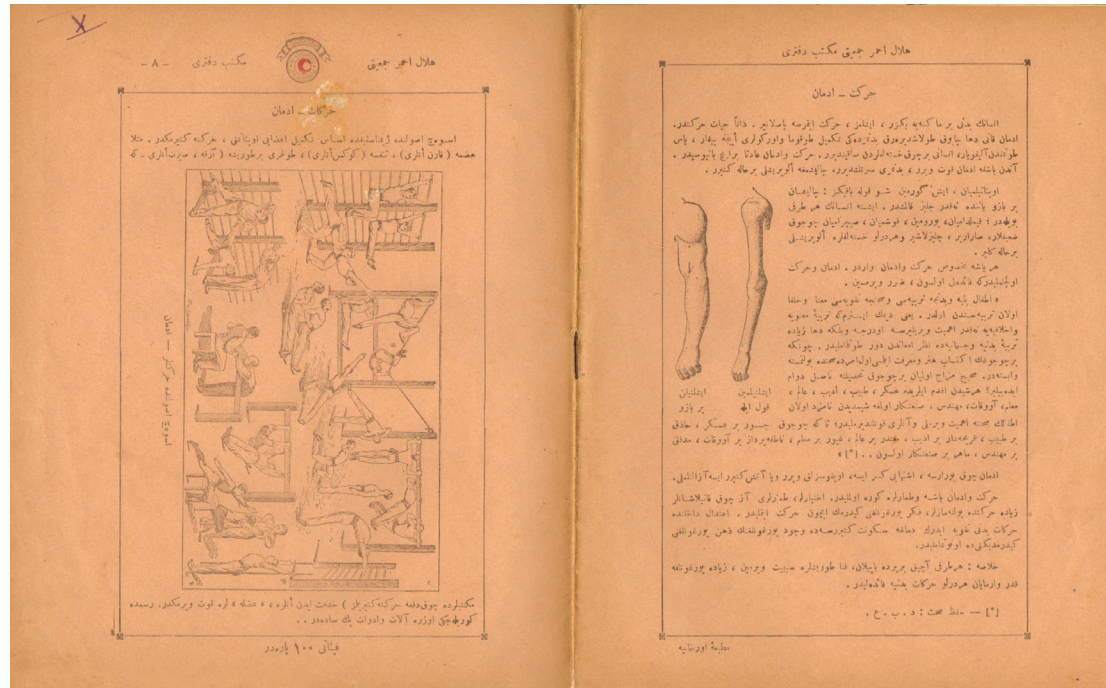 هلال احمر جمعیتی مکتب دفتری
حرکت ــ ادمان
انسانك بدنی بر ماکنه‌یه بکزر ، ایشلمز ، حرکت ایتمزسه پاسلانیر . ذاتاً حیات حرکتدر.
ادمان قانی دها چابوق طولاشدیره‌رق بدنمزده‌کی تکمیل طوقوما واورکولری آییجه ییقار ، پاس
طوتمدن آلیقویار، انسانی برچوق خسته‌لقلردن صاقیندیرر . حرکت وادمان عادتا برعلاج
آندن باشقه ادمان قوت ویرر ، بدنمزی سرتلشدیرر، چالیشمغه الویریشلی برحاله کتیرر .
اویناتیلمیان ، ایش کورمین شو قوله باقیکز : چالیشان
بر بازو یاننده نه‌قدر جلیز قالمشدر . ایشته انسانك هر طرفی
بویله‌در ؛ قیملدامیان، یورومین ، قوشمیان ، صیچرامیان چوجوق
ضعیفلار، صاراریر ، جلیزلاشیر وهردرلو خسته‌لقلره الویریشلی
برحاله کلیر .
هر یاشه مخصوص حرکت وادمان واردر . ادمان وحرکت
اولچولمیدرکه فائده‌لی اولسون ، ضرر ویرمسین .
« اطفال بنیه وبدنجه تربیه‌سی وصحتجه تقویه‌سی معنا وخلقا
اولان تربیه‌سندن اولدر . یعنی دیمك ایسترم‌که تربیهٔ معنویه
واخلاقیه‌یه نه‌قدر اهمیت ویریلیرسه اودرجه وبلکه دها زیاده
تربیهٔ بدنیه وجسمانیه‌ده نظر امعاندن دور طوتلماملیدر. چونکه
برچوجوغك اکتساب هنر ومعرفت ایلمسی اول امرده صحتده بولنمسنه
وابسته‌در. صحیح مزاج اولمیان برچوجوق تحصیلنه ناصل دوام
ایده‌بیلیر؟ هرشیدن اقدم ایلریده عسکر ، طبیب ، ادیب ، عالم ،
معلم، آووقات، مهندس ، صنعتکار اولمغه شیمدیدن نامزد اولان
اطفالك صحتنه اهمیت ویرملی وآنلری قوتلندیرملیدر؛ تا که چوجوق جسور بر عسکر ، حاذق
بر طبیب ، قریحه‌دار بر ادیب ، مقتدر بر عالم ، غیور بر معلم ، ناطقه‌پرداز بر آووقات ، مدقق
بر مهندس ، ماهر بر صنعتکار اولسون . . [*] »
ایشلتیلمین
قول ایله
ایشلتیلن
بر بازو
ادمان چوق یورارسه ، اشتهایی کسر ایسه، اویقوسزلق ویرر ویا آتش کتیرر ایسه آزالتملی.
حرکت وادمان یاشه وطمارلره کوره اولملیدر. اختیارلر، طمارلری آز چوق قاتیلاشانلر
زیاده حرکتده بولنه‌مازلر، فکر یورغونلغی کیدرمك ایچون حرکت ایتملیدر . اعتدال داخلنده
حرکات بدنی تقویه ایدرك دماغه سکونت کتیررسه‌ده وجود یورغونلغنك ذهن یورغونلغنی
کیدرمدیکنی ده اونوتماملیدر.
خلاصه : هرطرفی آچیق بریرده یاپیلان، فنا طورینلره سببیت ویرمین ، زیاده یورغونلغه
قدر وارمایان هردرلو حرکات بدنیه فائده‌لیدر.
[*] — حفظ صحت : د . ب . ع .
مطبعهٔ اورخانیه
هلال احمر جمعیتی
مکتب دفتری
- ٨ -
حرکات ــ ادمان
اسوه‌ج اصولنده ژیمناستیقده اساس تکمیل اعضایی اویناتمق ، حرکته کتیرمکدر . مثلا
هضمه ( قارن آتلری) ، تنفسه (کوکس آتلری) ، طوغری برطوریشه ( آرقه ، صیرت آتلری ـ که
اسوه‌ج اصولنده حرکتلر — ادمان
مکتبلرده چوق دفعه حرکته کتیریلمز ) خدمت ایدن آتلره ، « عضله » لره قوت ویرمکدر. رسمده
کوریله‌جکی اوزره آلات وادوات پك ساده‌در . .
فیئاتی ١٠٠ پاره‌در